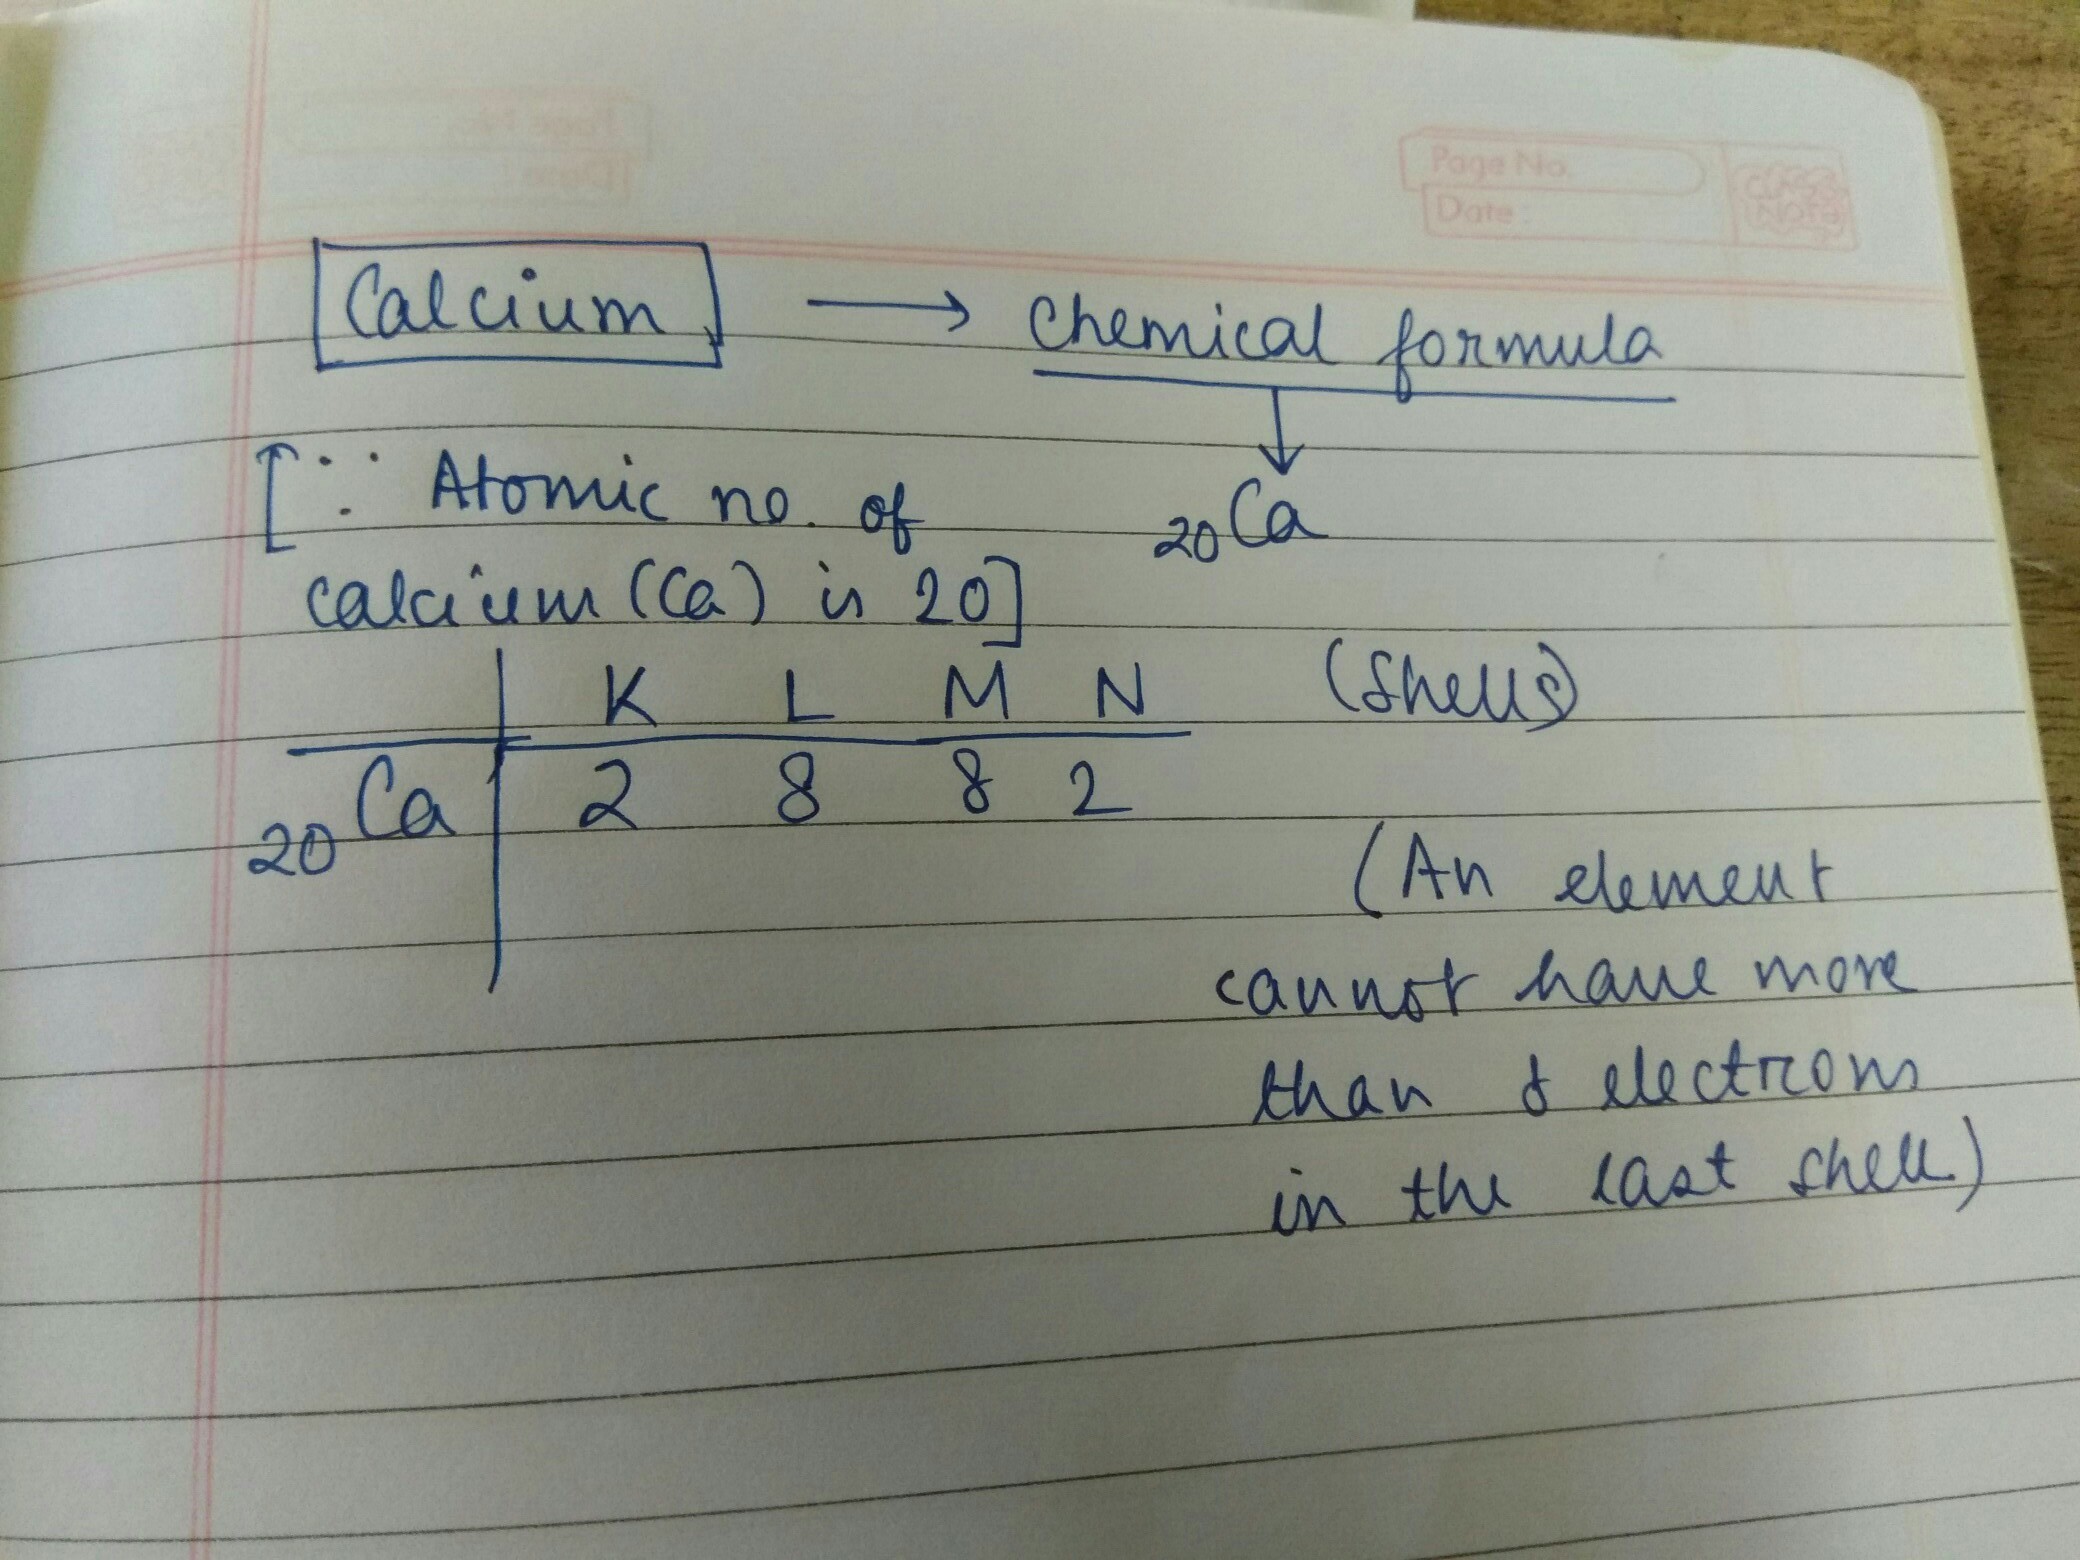 Page No.
Date :
CLASS NOTE
Calcium → Chemical formula
[∵ Atomic no. of
₂₀Ca
calcium (Ca) is 20]
K L M N (Shells)
₂₀Ca 2 8 8 2
(An element
cannot have more
than 8 electrons
in the last shell)